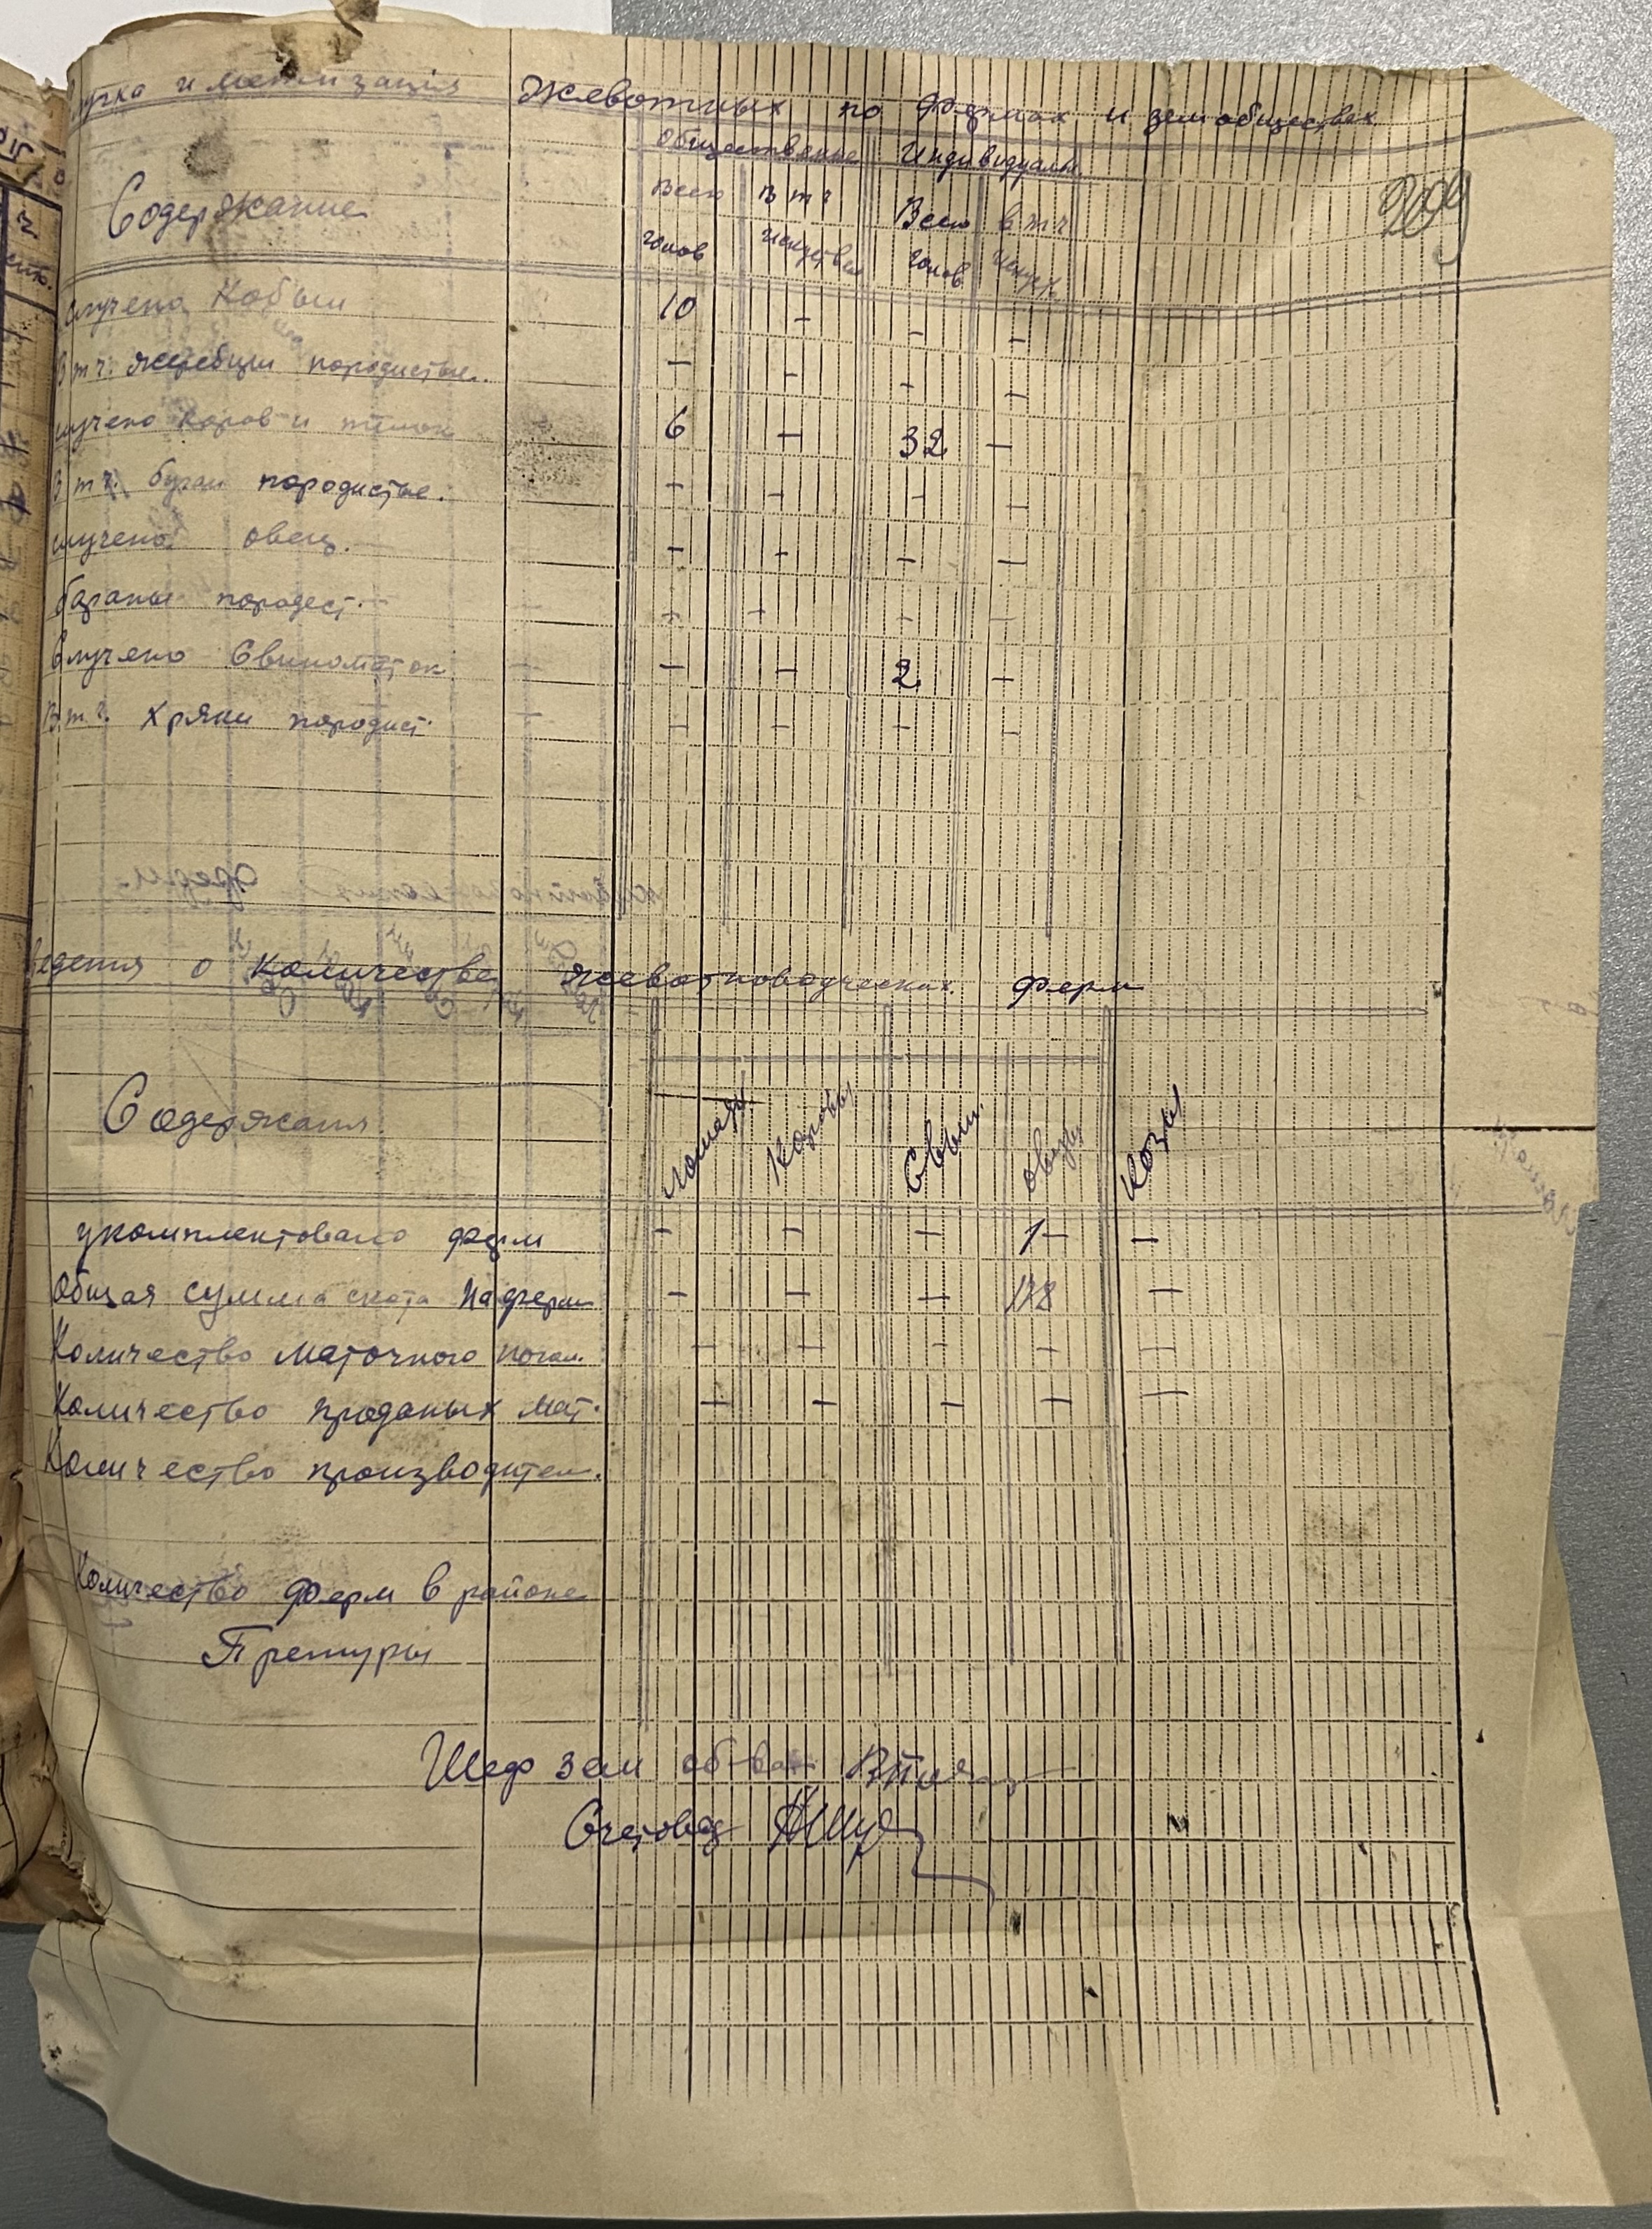 учка и метизація Жевотных по фермах и земобществах
209
Содержание Общественные Индивидуалн.
Всего в т ч Всего в т ч
голов искуствен голов искус.
случено Кобыл 10 – – –
В т ч. жеребцы породистые. – – – –
случено коров и телок 6 – 32 –
В т ч. бугаи породистые. – – – –
случено овец. – – – –
бараны породест. – – – –
Случено Свиноматок – – 2 –
В. т. ч. хряки породист. – – – –
ведения о количестве жевотноводческих ферм
Содержания лошади Коровы Свин. овцы Козы
укомплектовано ферм – – – 1 –
Общая сумма скота на ферм – – – 138 –
Количество маточного погол. – – – – –
Количество проданых мат. – – – – –
Количество производител.
Количество ферм в районе
Претуры
Шеф зем об-ва
Счетовод